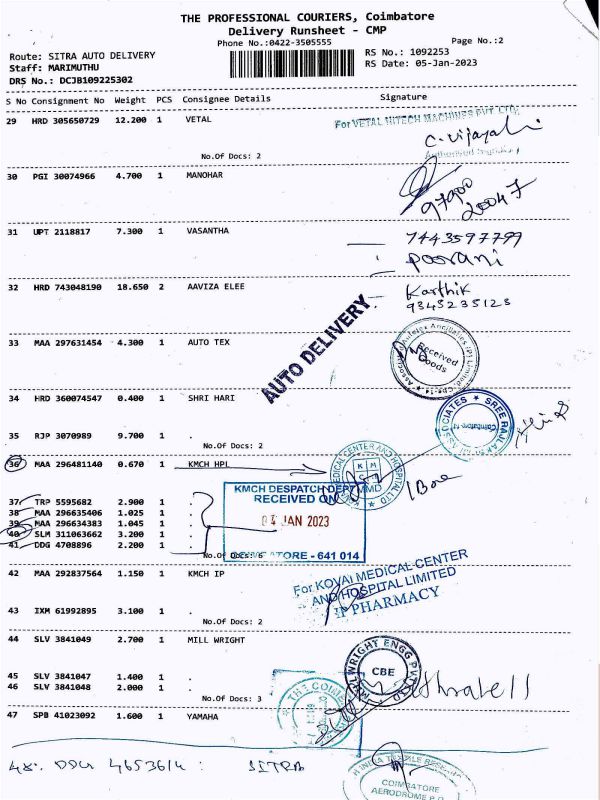 THE PROFESSIONAL COURIERS, Coimbatore
Delivery Runsheet - CMP
Phone No.:0422-3505555
Page No.:2
Route: SITRA AUTO DELIVERY
RS No.: 1092253
Staff: MARIMUTHU
RS Date: 05-Jan-2023
DRS No.: DCJB109225302
S No Consignment No Weight PCS Consignee Details Signature
29 HRD 305650729 12.200 1 VETAL
For VETAL HITECH MACHINES PVT. LTD,
C. Vijayal
Authorised Signatory
No.Of Docs: 2
30 PGI 30074966 4.700 1 MANOHAR
97900
20047
31 UPT 2118817 7.300 1 VASANTHA
7443597799
Poorani
32 HRD 743048190 18.650 2 AAVIZA ELEE
Karthik
9345235123
AUTO DELIVERY
33 MAA 297631454 4.300 1 AUTO TEX
Received
Goods
34 HRD 360074547 0.400 1 SHRI HARI
35 RJP 3070989 9.700 1 .
No.Of Docs: 2
36 MAA 296481140 0.670 1 KMCH HPL
1 Box
KMCH DESPATCH DEPT
RECEIVED ON
04 JAN 2023
COIMBATORE - 641 014
37 TRP 5595682 2.900 1 .
38 MAA 296635406 1.025 1 .
39 MAA 296634383 1.045 1 .
40 SLM 311063662 3.200 1 .
41 DDG 4708896 2.200 1 .
No.Of Docs: 6
42 MAA 292837564 1.150 1 KMCH IP
For KOVAI MEDICAL CENTER
AND HOSPITAL LIMITED
IP PHARMACY
43 IXM 61992895 3.100 1 .
No.Of Docs: 2
44 SLV 3841049 2.700 1 MILL WRIGHT
MILLWRIGHT ENGG PVT LTD
CBE
45 SLV 3841047 1.400 1 .
46 SLV 3841048 2.000 1 .
No.Of Docs: 3
47 SPB 41023092 1.600 1 YAMAHA
48. DDG 4653614 : SITRA
COIMBATORE
AERODROME P.O